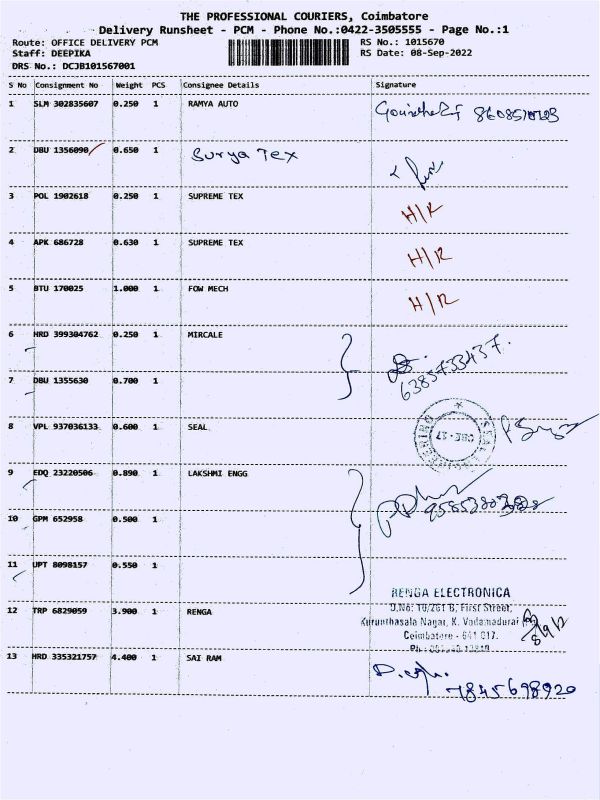 THE PROFESSIONAL COURIERS, Coimbatore
Delivery Runsheet - PCM - Phone No.:0422-3505555 - Page No.:1
Route: OFFICE DELIVERY PCM
Staff: DEEPIKA
DRS No.: DCJB101567001
RS No.: 1015670
RS Date: 08-Sep-2022
S No Consignment No Weight PCS Consignee Details Signature
1 SLM 302835607 0.250 1 RAMYA AUTO
2 DBU 1356090 0.650 1 Surya Tex
3 POL 1902618 0.250 1 SUPREME TEX H/R
4 APK 686728 0.630 1 SUPREME TEX H/R
5 BTU 170025 1.000 1 FOW MECH H/R
6 HRD 399304762 0.250 1 MIRCALE
6385733437.
7 DBU 1355630 0.700 1
8 VPL 937036133 0.600 1 SEAL
9 EDQ 23220506 0.890 1 LAKSHMI ENGG
10 GPM 652958 0.500 1
11 UPT 8098157 0.550 1
RENGA ELECTRONICA
D.No: 10/261 B, First Street,
Kurunthasala Nagar, K. Vadamadurai
Coimbatore - 641 017.
12 TRP 6829059 3.900 1 RENGA
13 HRD 335321757 4.400 1 SAI RAM
7845698920